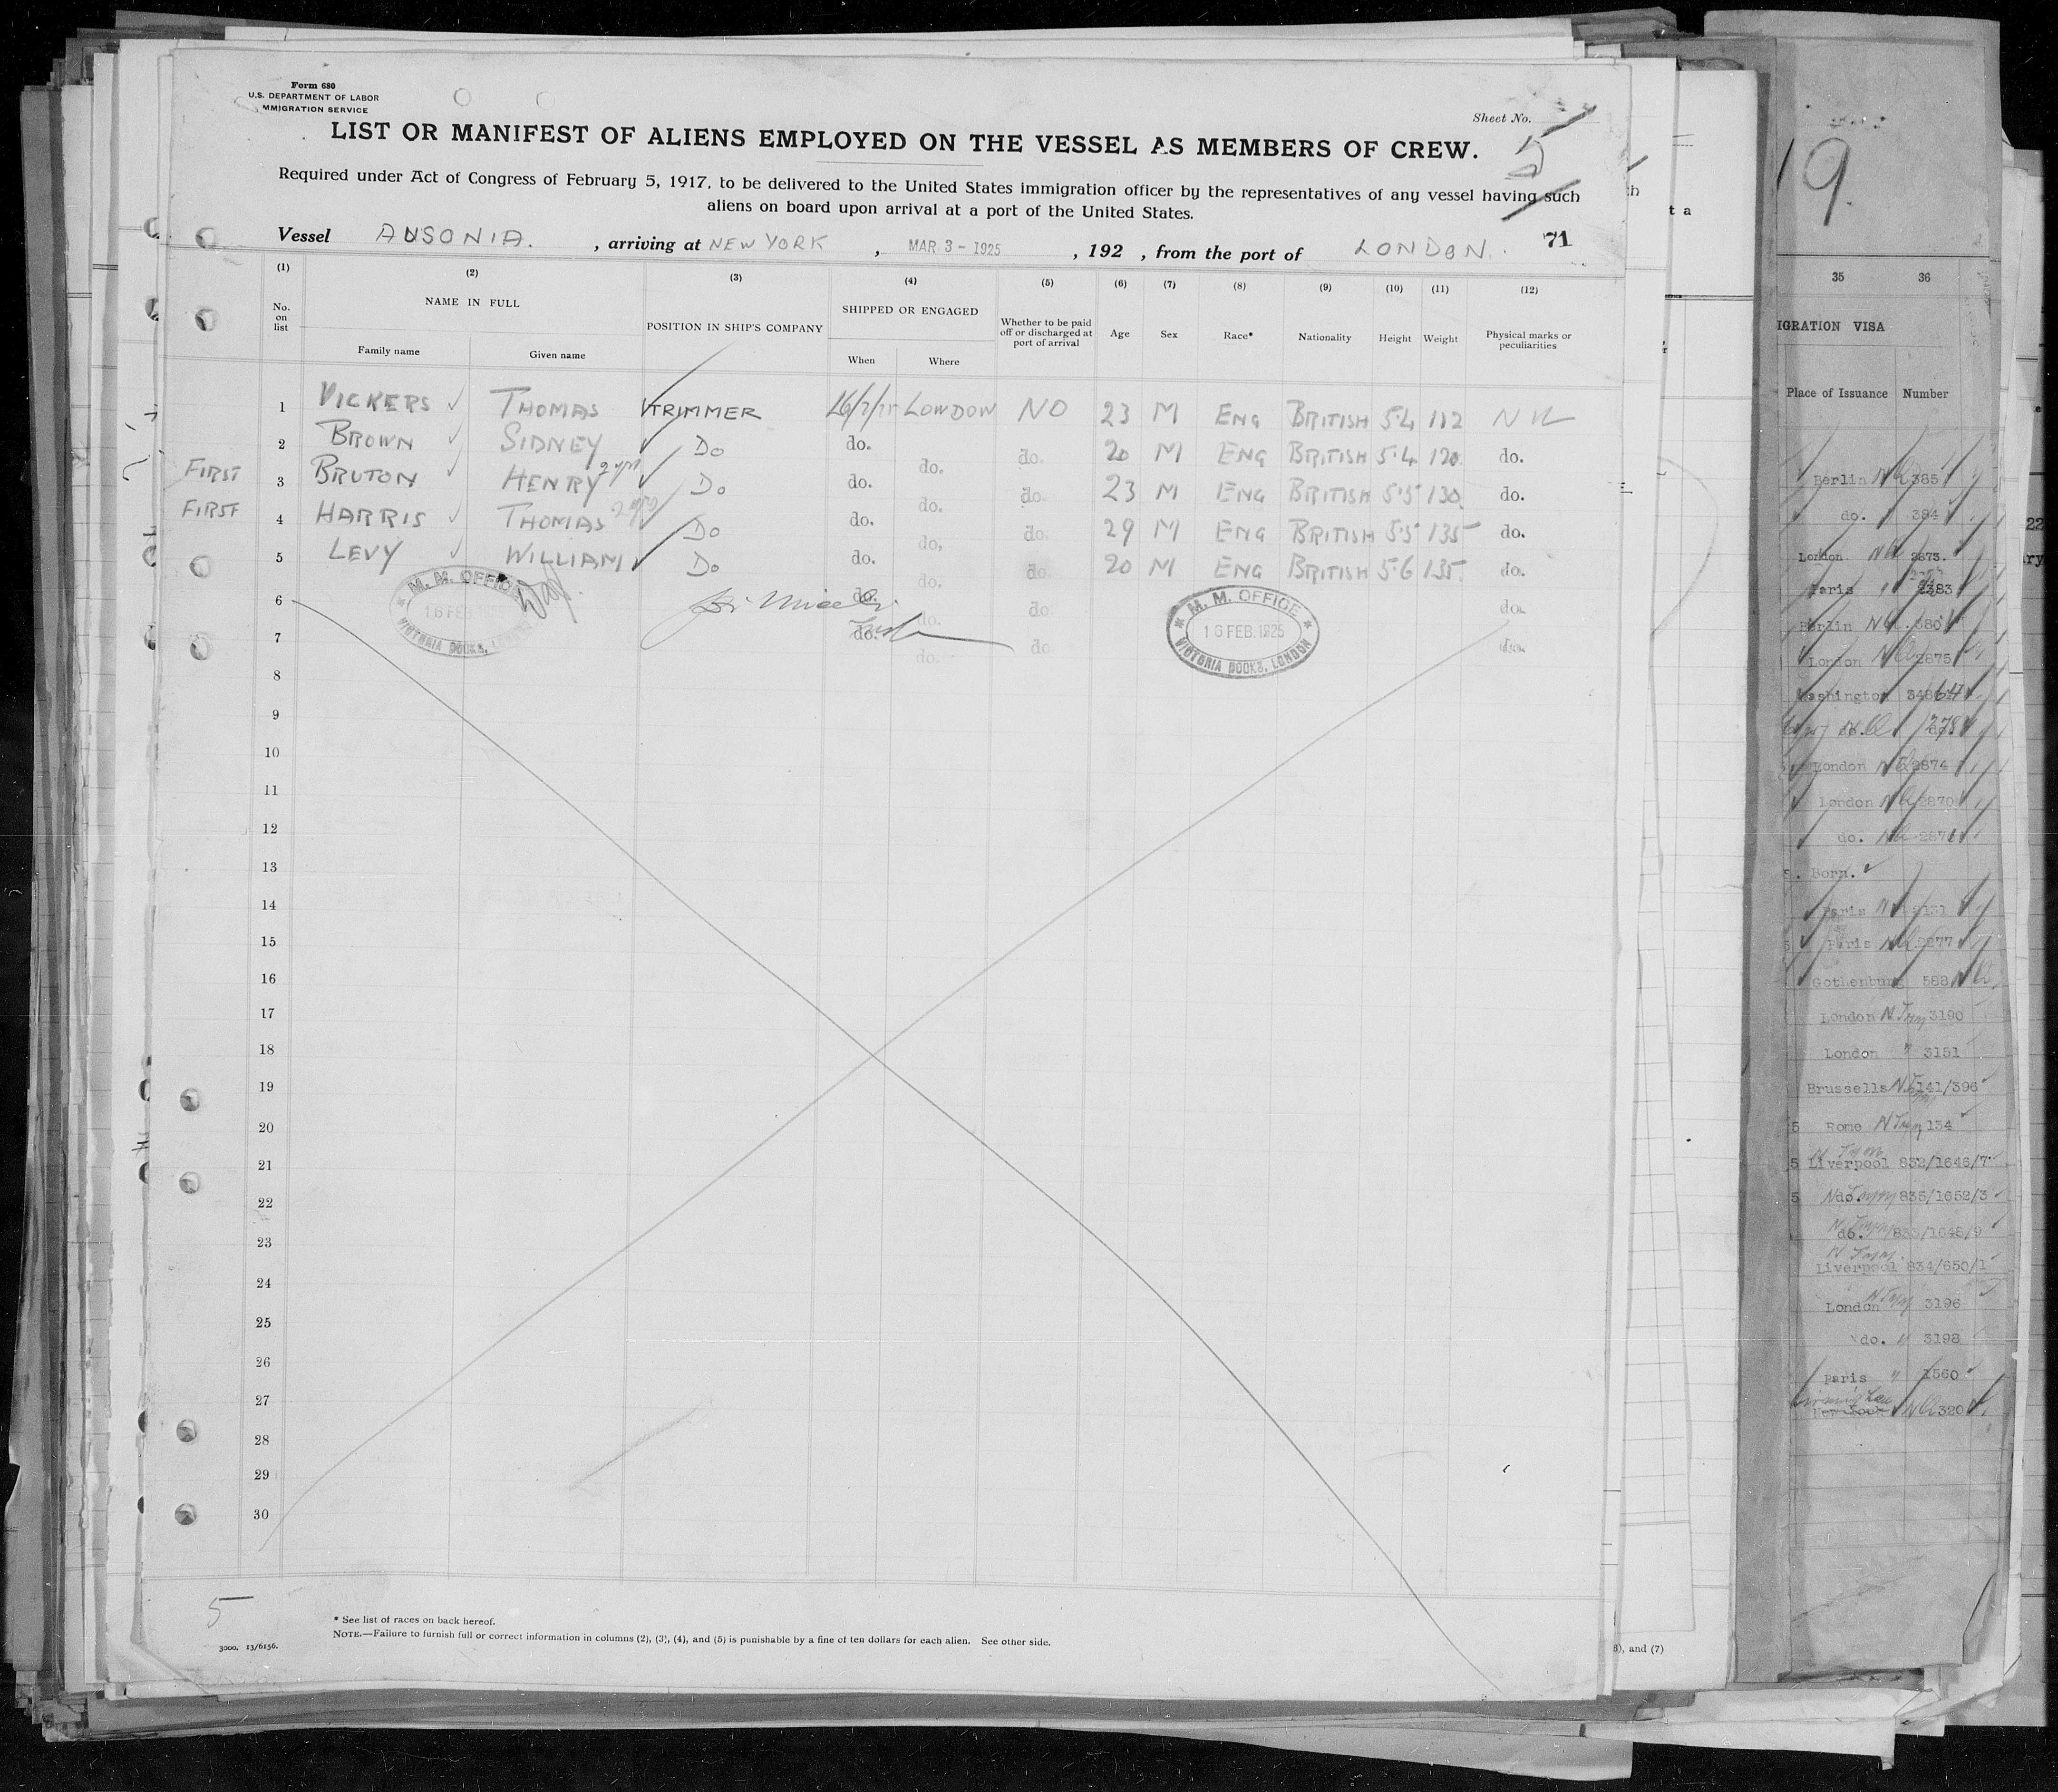 Form 680
U.S. DEPARTMENT OF LABOR
MMIGRATION SERVICE
Sheet No.
LIST OR MANIFEST OF ALIENS EMPLOYED ON THE VESSEL AS MEMBERS OF CREW.
Required under Act of Congress of February 5, 1917, to be delivered to the United States immigration officer by the representatives of any vessel having such
aliens on board upon arrival at a port of the United States.
Vessel AUSONIA. , arriving at NEW YORK , MAR 3 - 1925 , 192 , from the port of LONDON. 71
(1) (2) (3) (4) (5) (6) (7) (8) (9) (10) (11) (12)
No. on list NAME IN FULL POSITION IN SHIP'S COMPANY SHIPPED OR ENGAGED Whether to be paid off or discharged at port of arrival Age Sex Race* Nationality Height Weight Physical marks or peculiarities
Family name Given name When Where
1 VICKERS THOMAS TRIMMER LONDON NO 23 M ENG BRITISH 5·4 112 NIL
2 BROWN SIDNEY Do do. do. do. 20 M ENG BRITISH 5·4 120 do.
FIRST 3 BRUTON HENRY Do do. do. do. 23 M ENG BRITISH 5·5 130 do.
FIRST 4 HARRIS THOMAS Do do. do. do. 29 M ENG BRITISH 5·5 135 do.
5 LEVY WILLIAM Do do. do. do. 20 M ENG BRITISH 5·6 135 do.
6 do. do. do do.
7 do. do. do do.
M. M. OFFICE
16 FEB
VICTORIA DOCKS,
M. M. OFFICE
16 FEB. 1925
VICTORIA DOCKS, LONDON
8
9
10
11
12
13
14
15
16
17
18
19
20
21
22
23
24
25
26
27
28
29
30
5
* See list of races on back hereof.
NOTE.—Failure to furnish full or correct information in columns (2), (3), (4), and (5) is punishable by a fine of ten dollars for each alien. See other side.
3000. 13/6156.
and (7)
19.
35 36
IGRATION VISA
Place of Issuance Number
Berlin 385
do. 384
London 2873.
Paris 2383
Berlin 380
London 2875
Washington
London 2874
London 2870
do.
Born.
Paris
Paris
Gothenburg 588
London 3190
London 3151
Brussells 141/396
Rome 134
5 Liverpool 832/1646/7
5 do. 835/1652/3
do.
Liverpool 834/650/1
London 3196
do. 3198
Paris 1560
New York 320